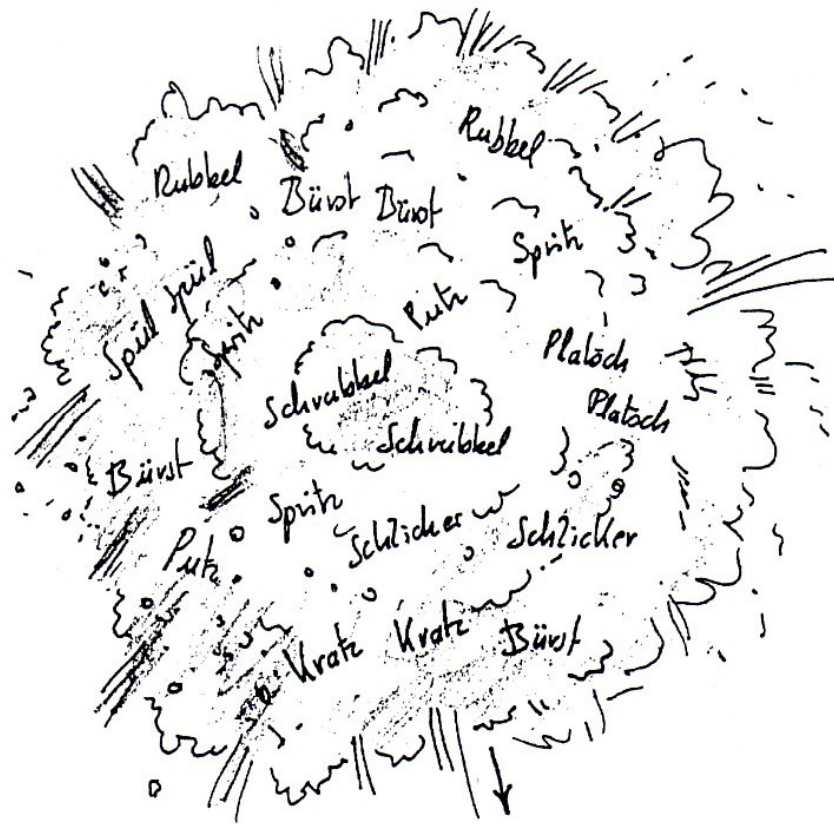 Rubbel
Rubbel
Bürst Bürst
Spritz
Spül Spül
Spritz
Putz
Platsch
Schrubbel
Platsch
Schrubbel
Bürst
Spritz
Schlicker
Schlicker
Putz
Kratz Kratz
Bürst